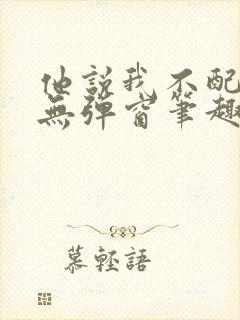 他說我不配
無彈窗筆趣
慕輕語